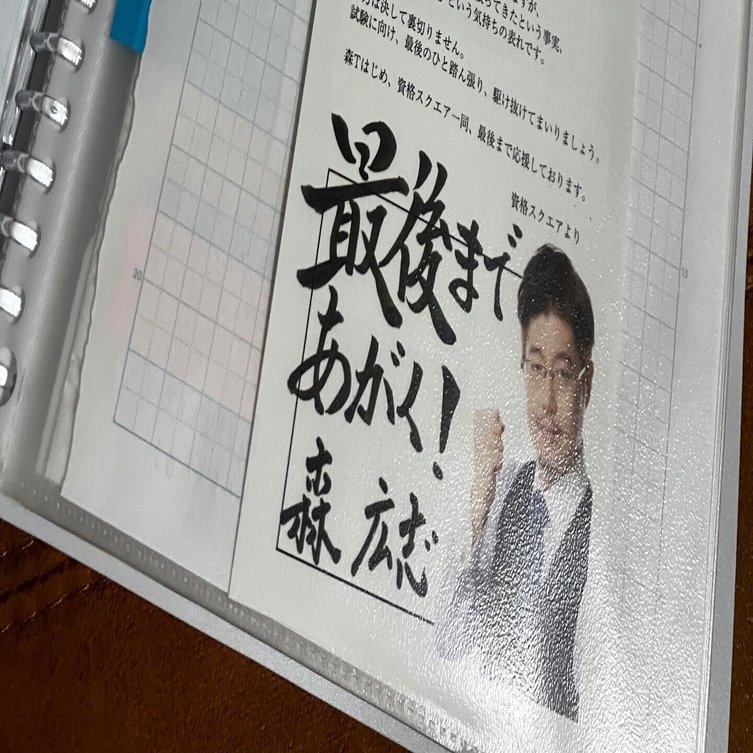 ってきたという事実、
という気持ちの表れです。
は決して裏切りません。
試験に向け、最後のひと踏ん張り、駆け抜けてまいりましょう。
森Tはじめ、資格スクエア一同、最後まで応援しております。
資格スクエアより
最後まで
あがく！
森 広志
20
15